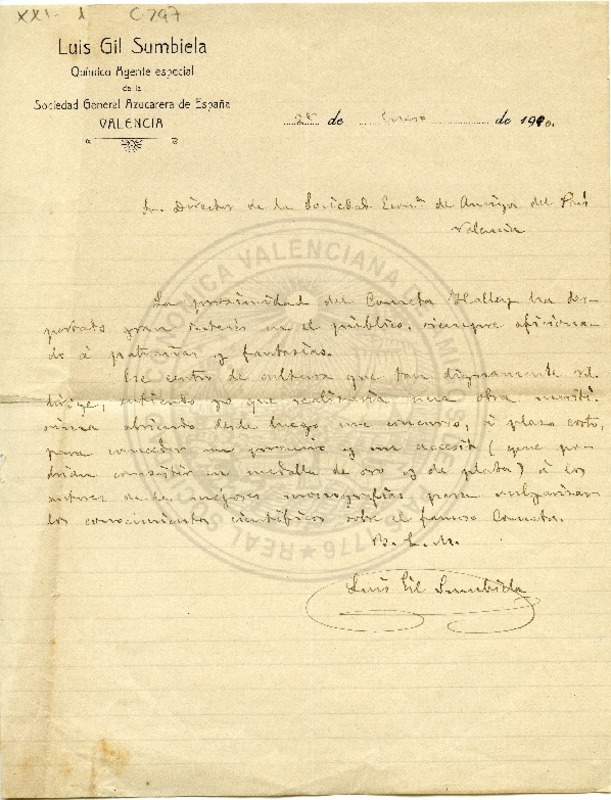 XXI-1 C-297
Luis Gil Sumbiela
Químico Agente especial
de la
Sociedad General Azucarera de España
VALENCIA
25 de Enero de 1910.
Sr. Director de la Sociedad Econª de Amigos del País
Valencia
La proximidad del Cometa Halley ha des-
pertado gran interés en el público, siempre aficiona-
do á patrañas y fantasías.
Ese centro de cultura que tan dignamente Vd.
dirige, entiendo yo que realizaría una obra meriti-
sima abriendo desde luego un concurso, á plazo corto,
para conceder un premio y un accesit (que po-
drían consistir en medalla de oro y de plata) á los
autores de las mejores monografías para vulgarizar
los conocimientos científicos sobre el famoso Cometa.
B. L. M.
Luis Gil Sumbiela
REAL SOCIEDAD ECONÓMICA VALENCIANA DE AMIGOS DEL PAÍS 1776